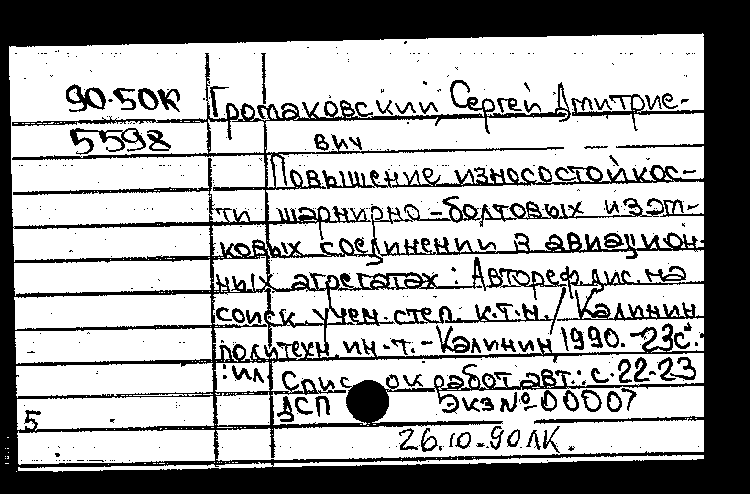 90-50К Громаковский, Сергей Дмитрие-
5598 вич
Повышение износостойкос-
ти шарнирно-болтовых
ковых соединении в авиацион-
ных агрегатах: Автореф. дис. на
соиск. учен. степ. к.т.н. / Калинин
политехн. ин-т. - Калинин, 1990. - 23с.:
:ил Спис ок работ авт.: с. 22-23
ДСП Экз № 00007
5
26.10-90 ЛК.